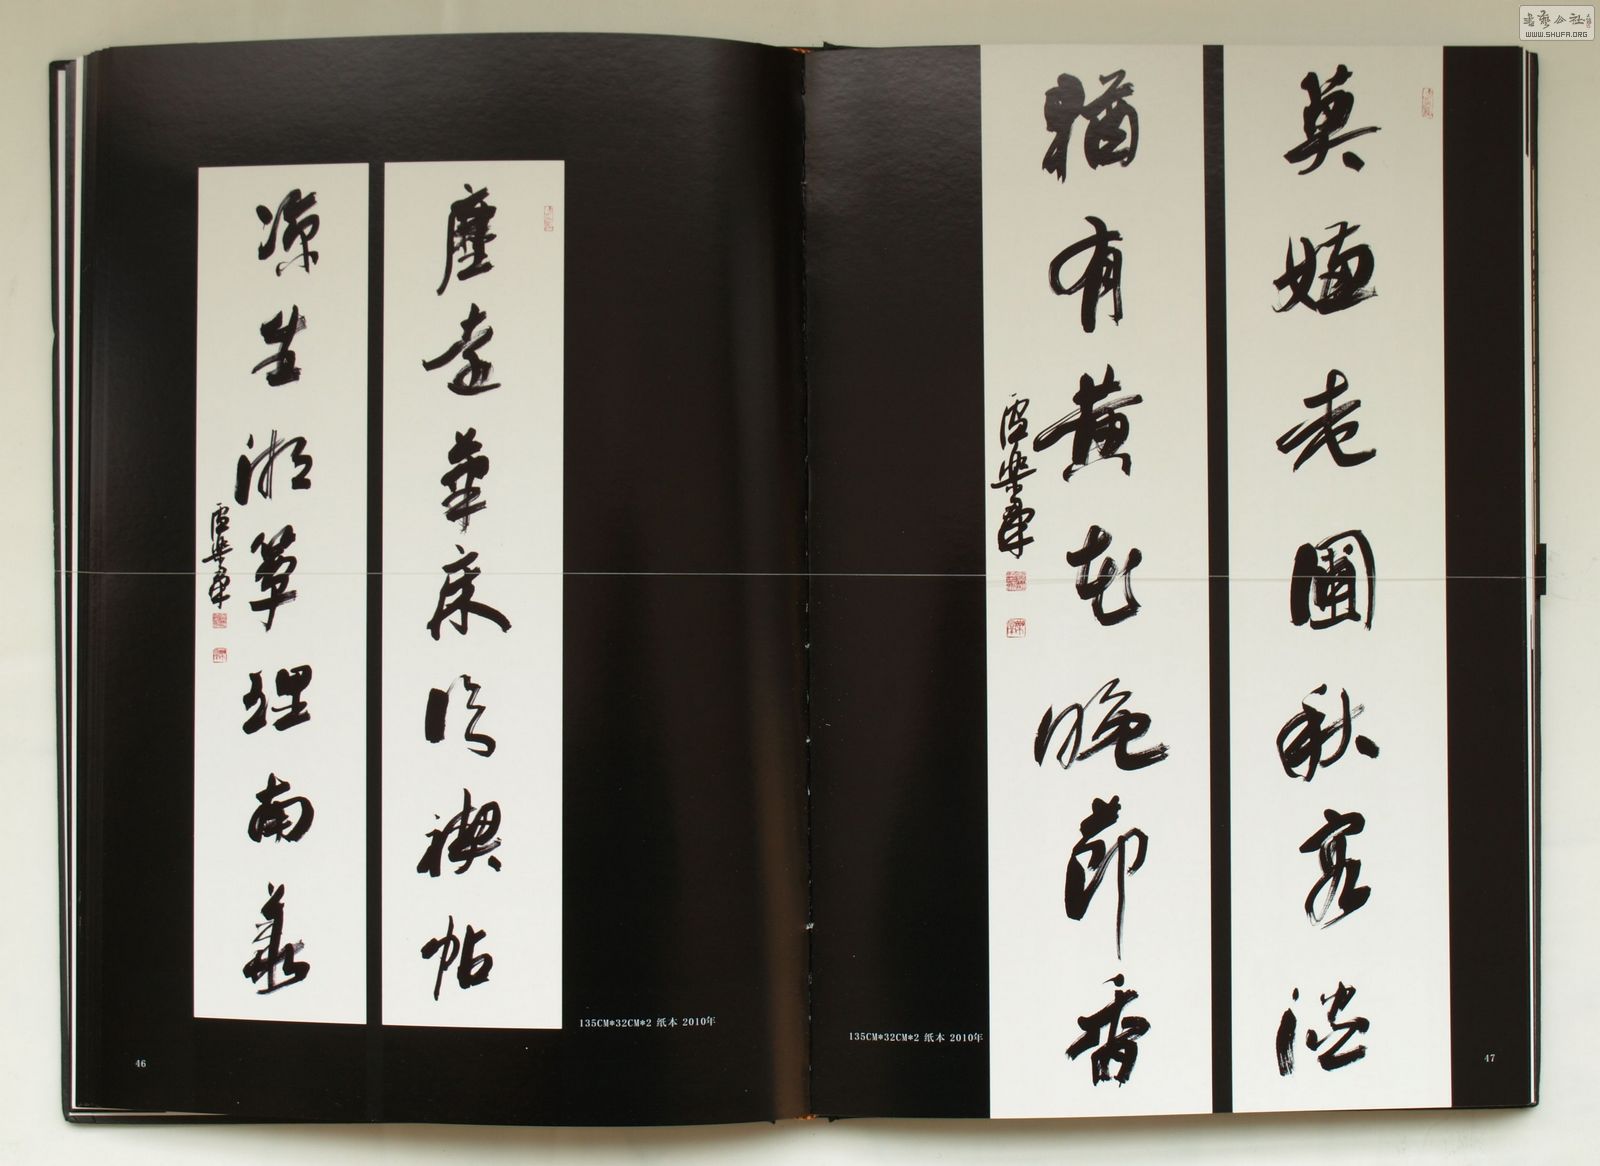 塵遠華床臨禊帖
凉生湘簟理南華
135CM*32CM*2 纸本 2010年
46
莫嫌老圃秋容淡
猶有黄花晚節香
135CM*32CM*2 纸本 2010年
47
WWW.SHUFA.ORG